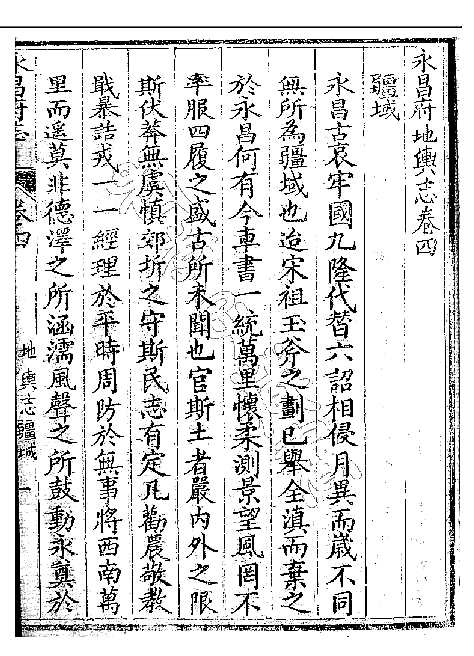 永昌府地輿志卷四
疆域
永昌古哀牢國九隆代替六詔相侵月異而歲不同
無所為疆域也迨宋祖玉斧之劃已舉全滇而棄之
於永昌何有今車書一統萬里懷柔測景望風罔不
率服四履之盛古所未聞也官斯土者嚴內外之限
斯伏莽無虞慎郊圻之守斯民志有定凡勸農敬教
戢暴詰戎一一經理於平時周防於無事將西南萬
里而遙莫非德澤之所涵濡風聲之所鼓動永奠於
永昌府志 卷四 地輿志 疆域 一